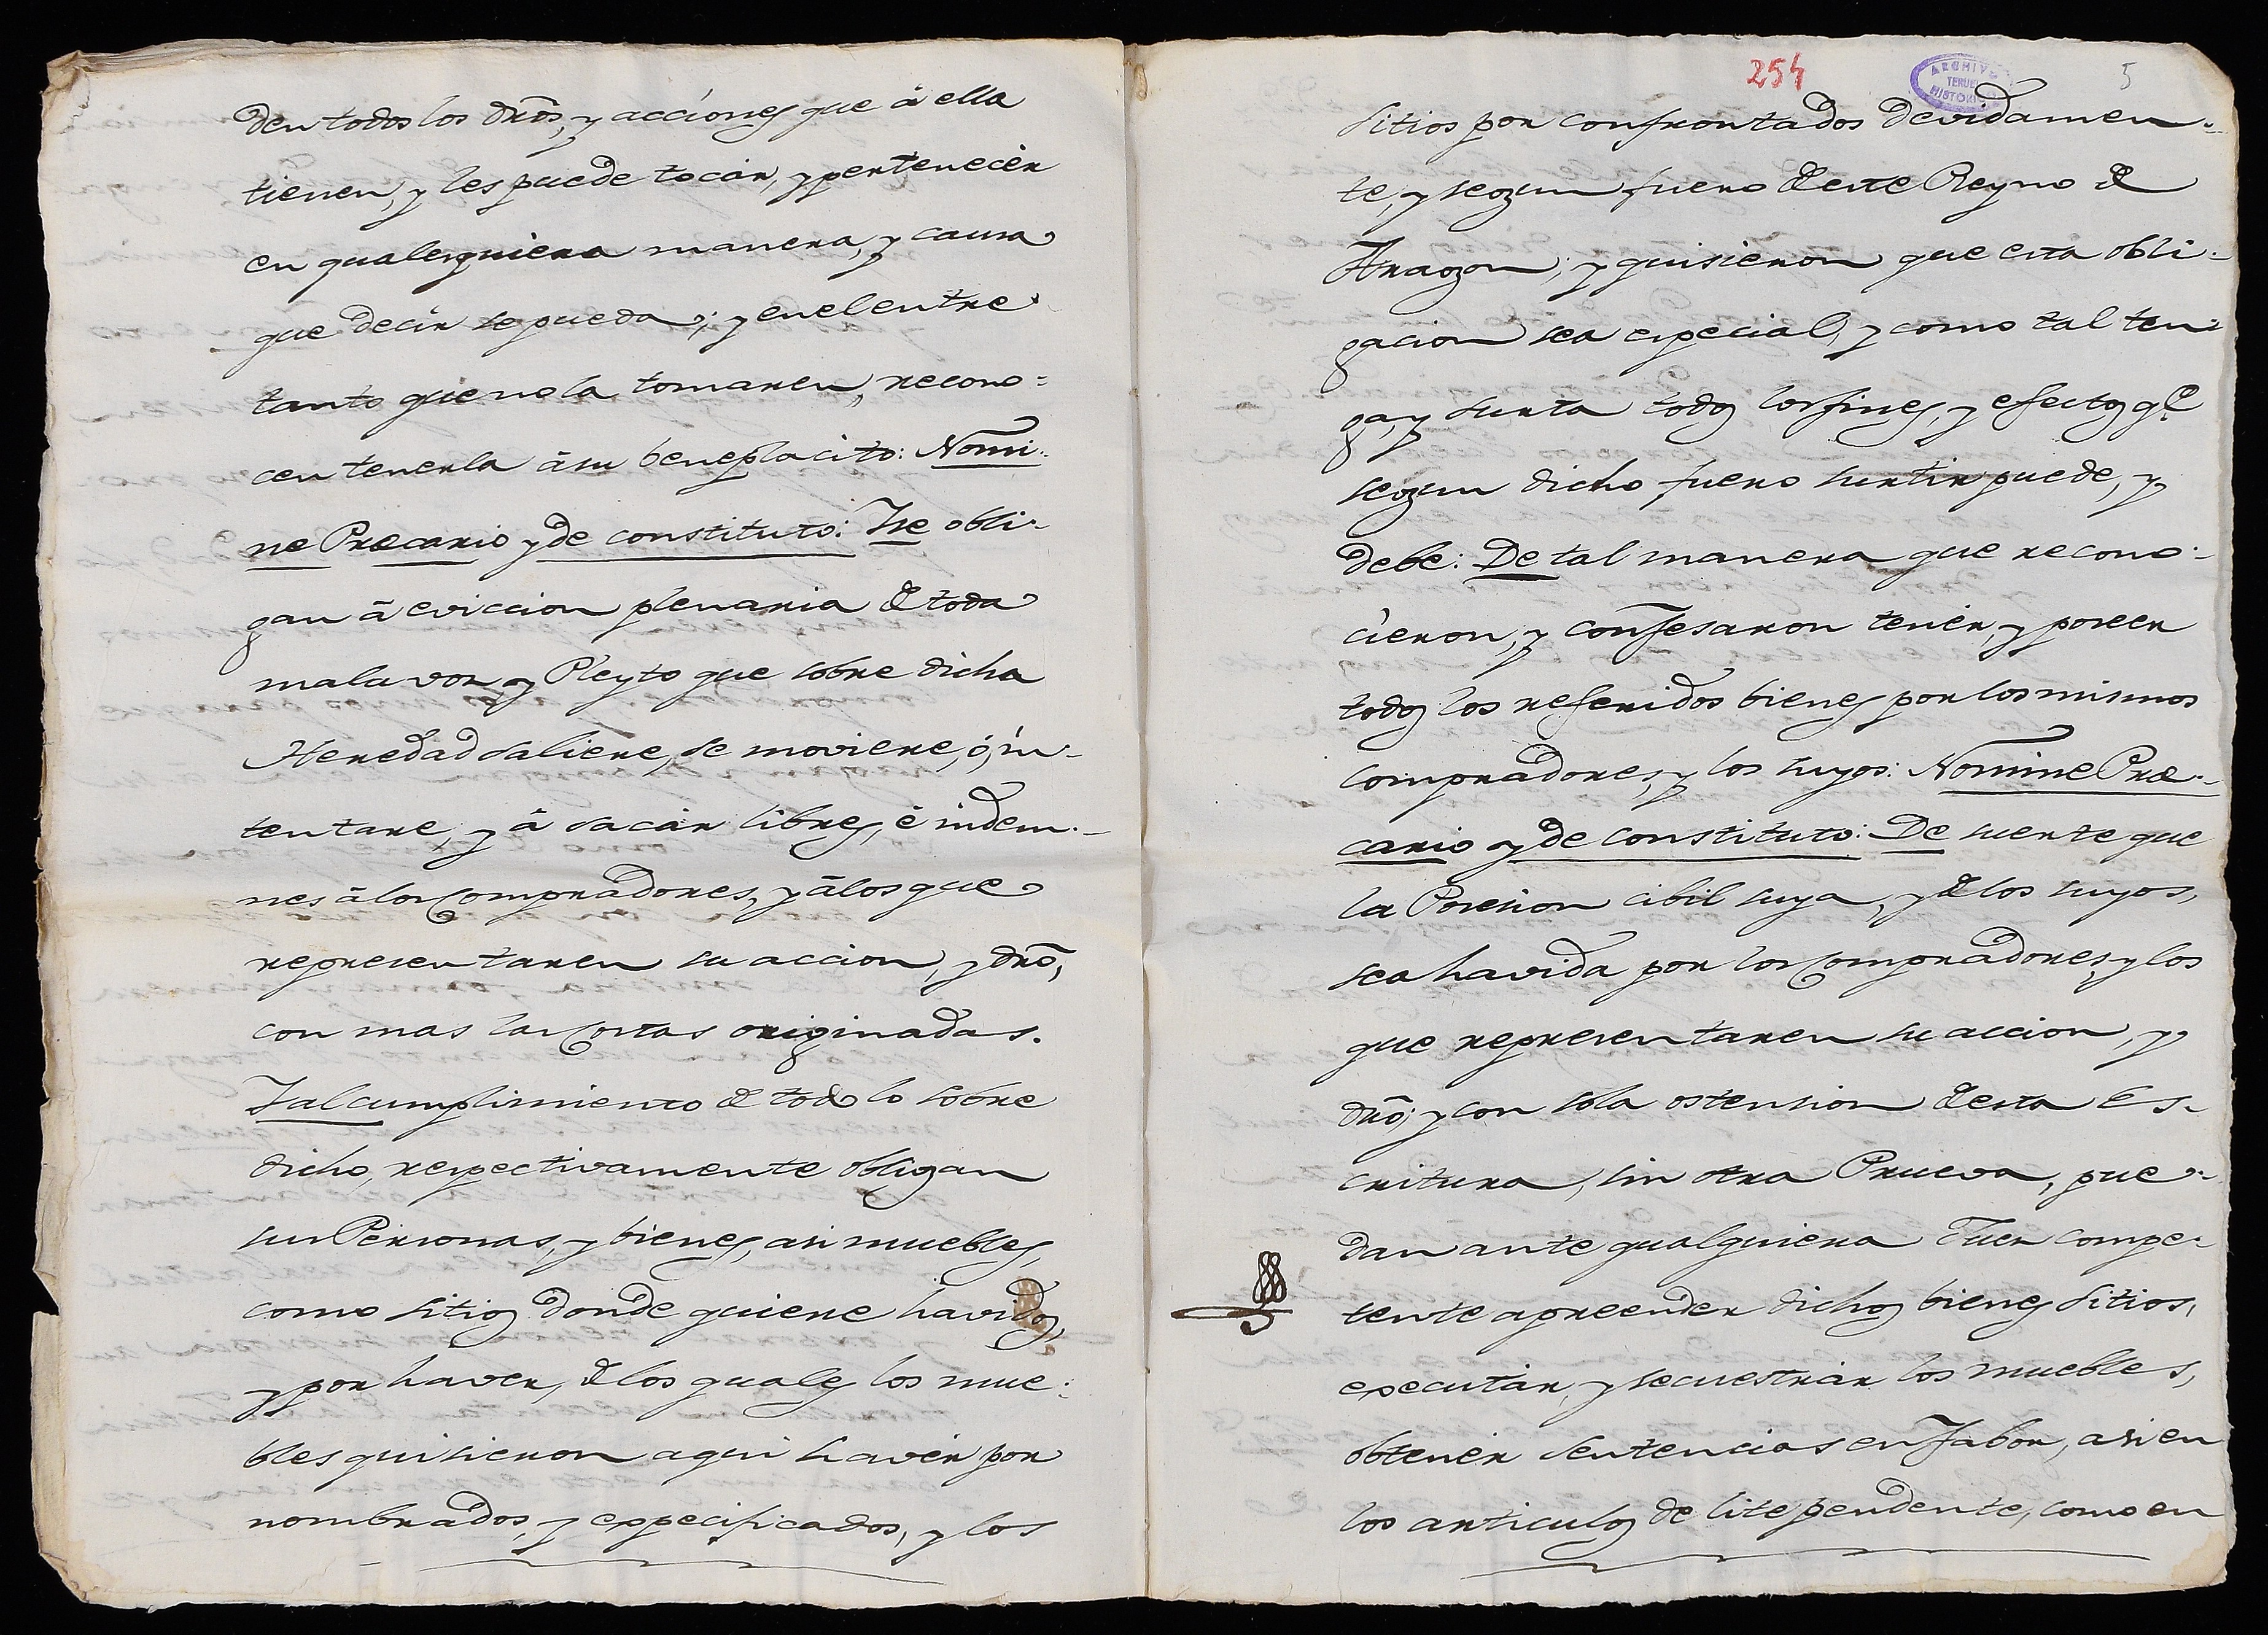 den todos los dr̃os, y acciones que â ella
tienen, y les puede tocàr, y pertenecèr
en qualesquiera manera, y causa
que decir se pueda; y en el entre
tanto que no la tomaren, recono=
cen tenerla â su beneplacito: Nomi-
ne Præcario y de constituto: Y se obli-
gan â eviccion plenaria de toda
mala voz, y Pleyto que sobre dicha
Heredad saliere, se moviere, ó, in-
tentare, y â sacàr libres, è indem-
nes â los Compradores, y â los que
representaren su accion, y dr̃o,
con mas las Costas originadas.
Y al cumplimiento de todo lo sobre
dicho, respectivamente obligan
sus Personas, y bienes, asi muebles,
como sitios donde quiere havidos,
y por haver, de los quales los mue-
bles quisieron aqui havèr por
nombrados, y especificados, y los
254
ARCHIVO
HISTORICO
TERUEL
5
sitios por confrontados devidamen-
te, y segun fuero de este Reyno de
Aragon; y quisieron que esta obli-
gacion sea especial, y como tal ten-
ga, y surta todos los fines, y efectos q.e
segun dicho fuero surtir puede, y
debe: De tal manera que recono-
cieron, y confesaron tenèr, y poseer
todos los referidos bienes por los mismos
compradores, y los suyos: Nomine Præ-
cario y de constituto: De suerte que
la Posesion cibil suya, y de los suyos,
sea havida por los Compradores, y los
que representaren su accion, y
dr̃o; y con sola ostension de esta Es-
critura, sin otra Prueva, pue-
dan ante qualquiera Juez compe-
tente apreender dichos bienes sitios,
executàr, y secuestràr los muebles,
obtenèr Sentencias en fabor, asi en
los articulos de lite pendente, como en